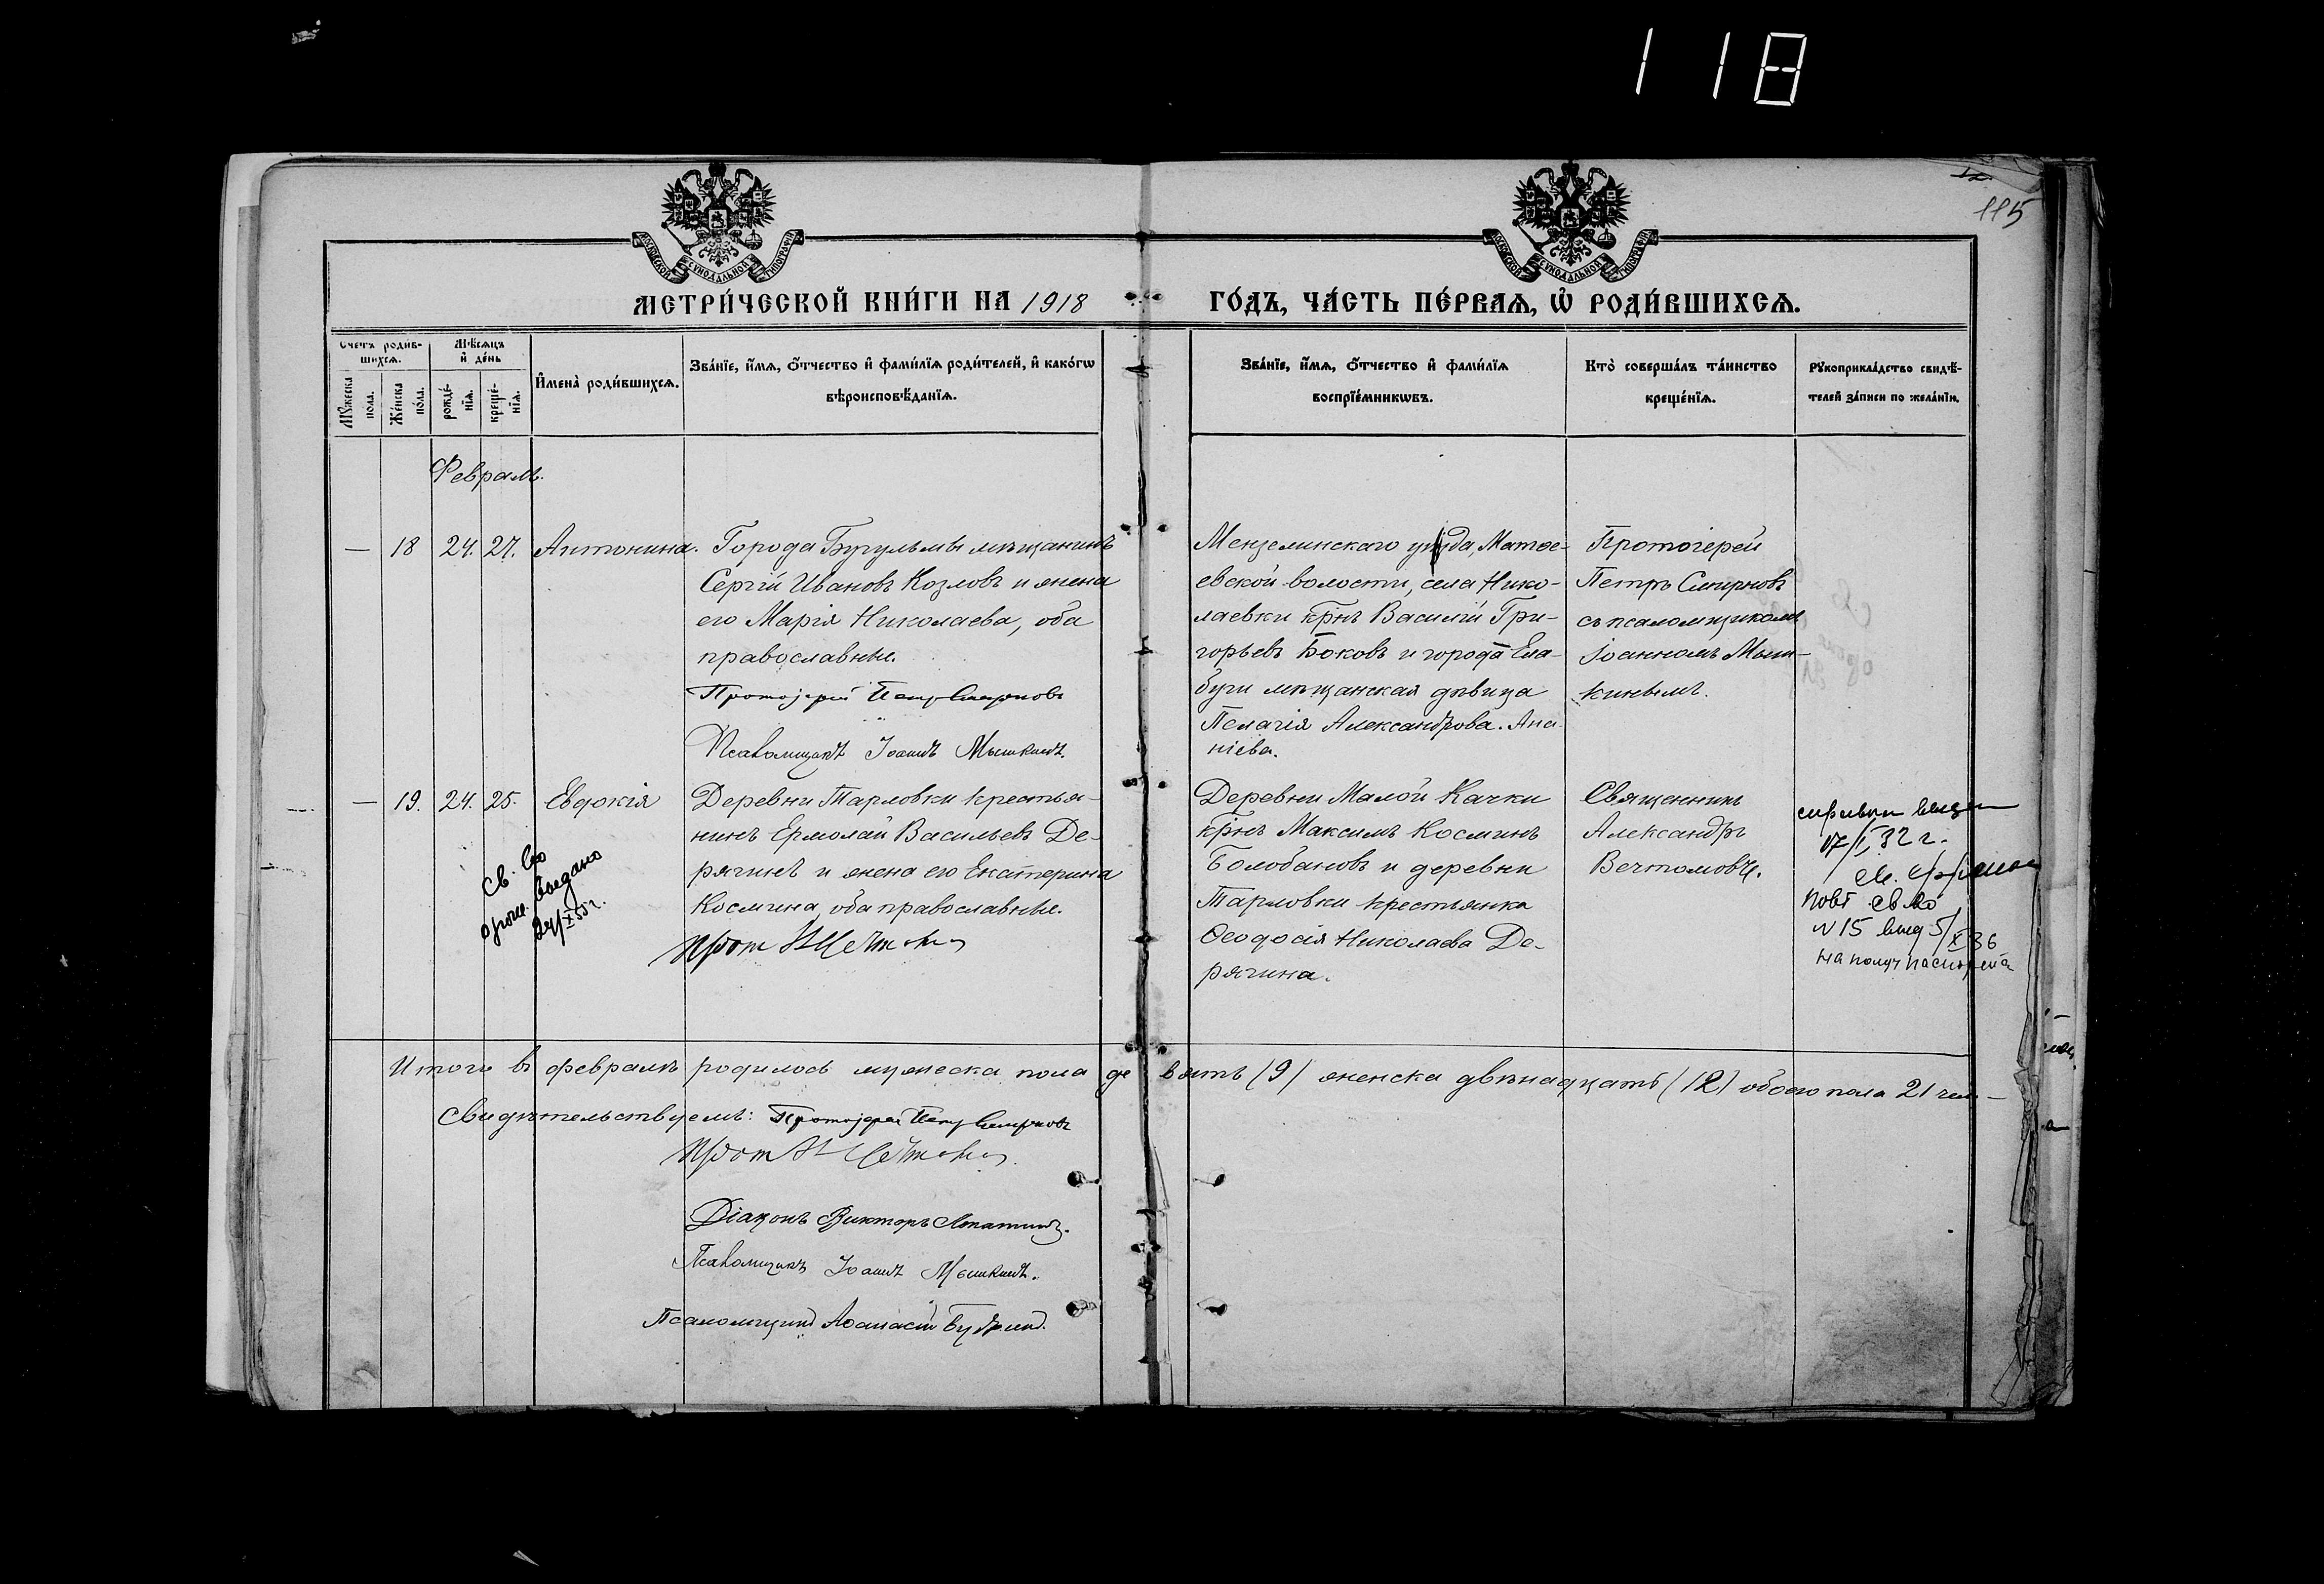 118
115
МОСКОВСКОЙ СѴНОДАЛЬНОЙ ТИПОГРАФІИ
МОСКОВСКОЙ СѴНОДАЛЬНОЙ ТИПОГРАФІИ
МЕТРИ́ЧЕСКОЙ КНИ́ГИ НА 1918
ГО́ДЪ, ЧА́СТЬ ПЕ́РВАѦ, Ѽ РОДИ́ВШИХСѦ.
Счетъ роди́в-
шихсѧ.
Мꙋ́жеска
пола.
Же́нска
по́ла.
Мѣ́сѧцъ
и҆ де́нь
рожде́-
нїѧ.
креще́-
нїѧ.
И҆мена̀ роди́вшихсѧ.
Зва́нїе, и҆́мѧ, ѻ҆́тчество и҆ фами́лїѧ роди́телей, и҆ како́гѡ
вѣроисповѣ́данїѧ.
Зва́нїе, и҆́мѧ, ѻ҆́тчество и҆ фами́лїѧ
воспрїе́мникѡвъ.
Кто̀ соверша́лъ та́инство
креще́нїѧ.
Рꙋкоприкла́дство свидѣ́-
телей за́писи по жела́нїю.
Февраль.
— 18 24. 27. Антонина.
Города Бугульмы мѣщанинъ
Сергій Ивановъ Козловъ и жена
его Марія Николаева, оба
православные.
Протоіерей Петръ Смирновъ
Псаломщикъ Іоаннъ Мышкинъ.
Мензелинскаго уѣзда, Матве-
евской волости, села Нико-
лаевки крнъ Василій Гри-
горьевъ Боковъ и города Ела-
буги мѣщанская дѣвица
Пелагія Александрова Ана-
ніева.
Протоіерей
Петръ Смирновъ
съ псаломщикомъ
Іоанномъ Мыш-
кинымъ.
— 19. 24. 25. Евдокія
Св. во
о рожд. выдано
24/X 55 г.
Деревни Тарловки крестья-
нинъ Ермолай Васильевъ Де-
рягинъ и жена его Екатерина
Космина, оба православные.
Прот
Деревни Малой Качки
крнъ Максимъ Косминъ
Болобановъ и деревни
Тарловки крестьянка
Ѳеодосія Николаева Де-
рягина.
Священникъ
Александръ
Вечтомовъ.
справки выдан
17/I 32 г.
повт св во
N 15 выд 5/X 36
на получ паспорта
Итого въ февралѣ родилось мужеска пола девять (9) женска двѣнадцать (12) обоего пола 21 чел.—
Свидѣтельствуемъ: Протоіерей Петръ Смирновъ
Прот
Діаконъ Викторъ
Псаломщикъ Іоаннъ Мышкинъ.
Псаломщикъ Аѳанасій